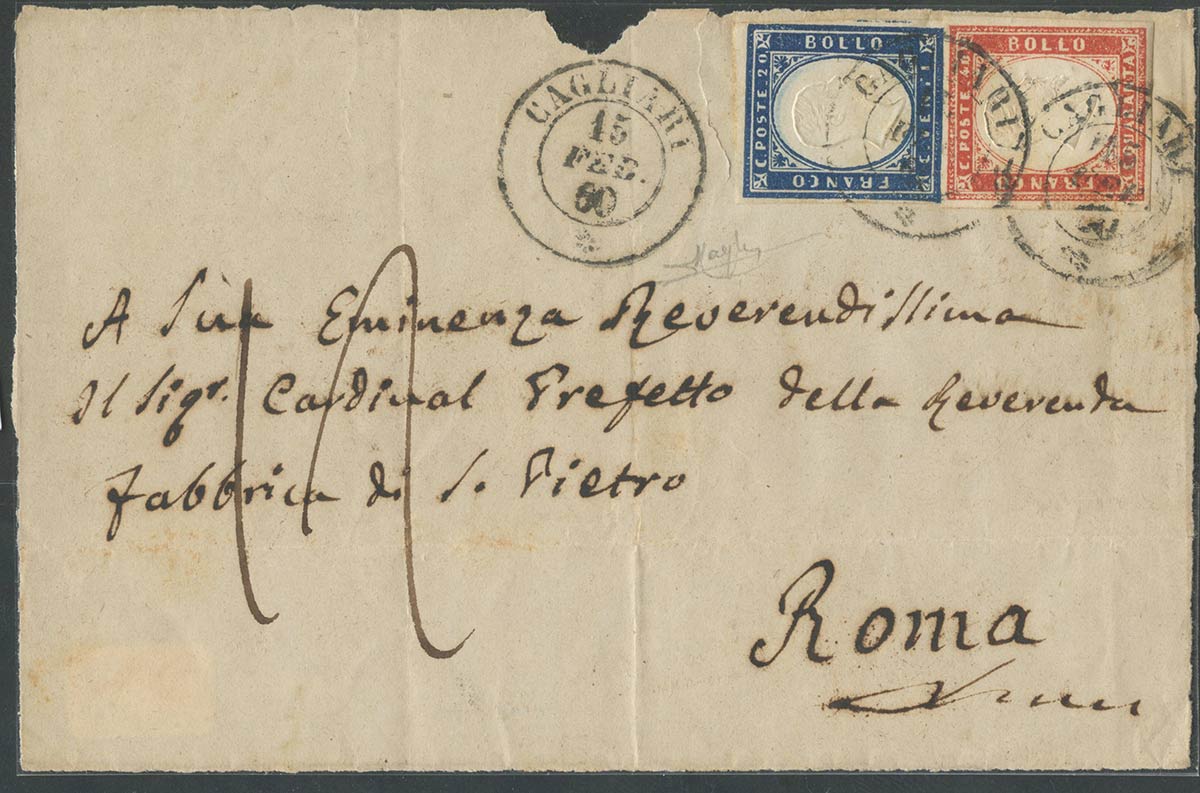 CAGLIARI
15
FEB.
60
BOLLO
C. POSTE. 20
C. VENTI
FRANCO
BOLLO
C. POSTE. 40
C. QUARANTA
FRANCO
CAGLIARI
A Sua Eminenza Reverendissima
Il Sigr. Cardinal Prefetto della Reverenda
Fabbrica di S. Pietro
Roma